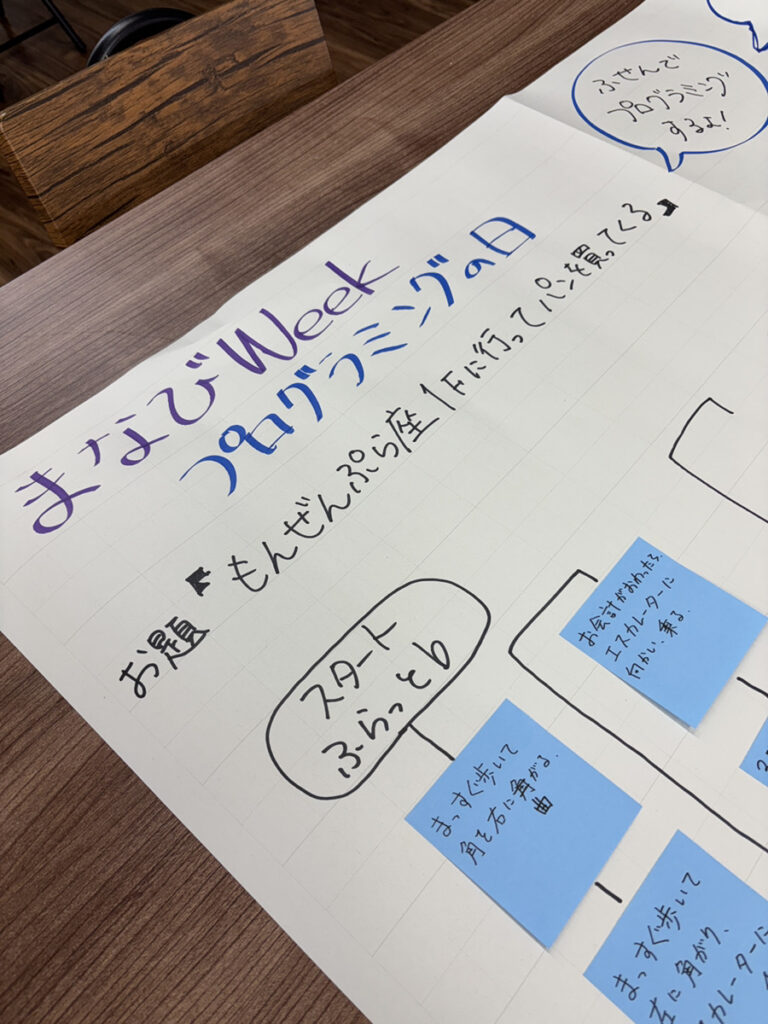 ふせんで
プログラミング
するよ!
まなびWeek
プログラミングの日
お題『もんぜんぷら座1Fに行ってパンを買ってくる』
スタート
ふらっとb
まっすぐ歩いて
角を右に角がる.
曲
お会計がおわったら、
エスカレーターに
向かい、乗る.
まっすぐ歩いて
左に角がり、
カレーターに